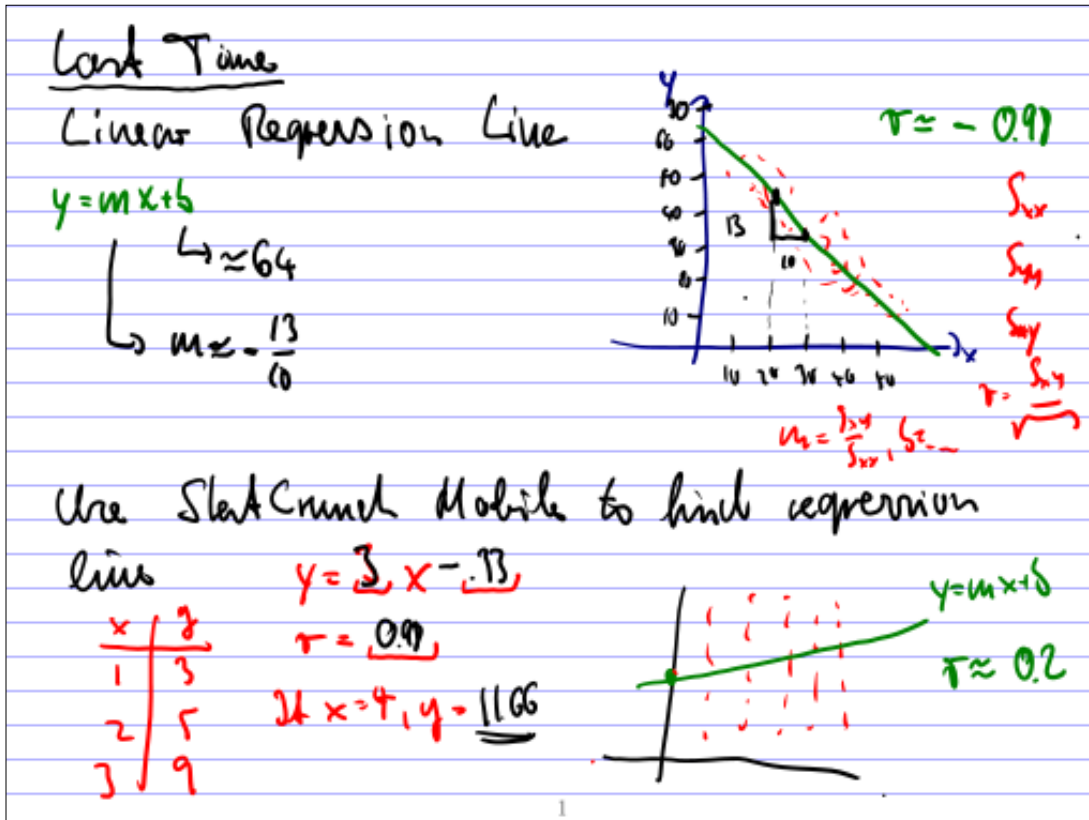 Last Time
Linear Regression Line
y = mx+b
↳ ≈ 64
↳ m ≈ - 13/10
y
60
50
20
10
13
10
10 20 30 40 50
x
r ≈ - 0.98
Sxx
Syy
Sxy
r = Sxy/√
m = Sxy/Sxx, b = ...
Use StatCrunch Mobile to find regression
line
y = 3 x - .33
x | y
1 | 3
2 | 5
3 | 9
r = 0.98
If x=4, y = 11.66
y=mx+b
r ≈ 0.2
1